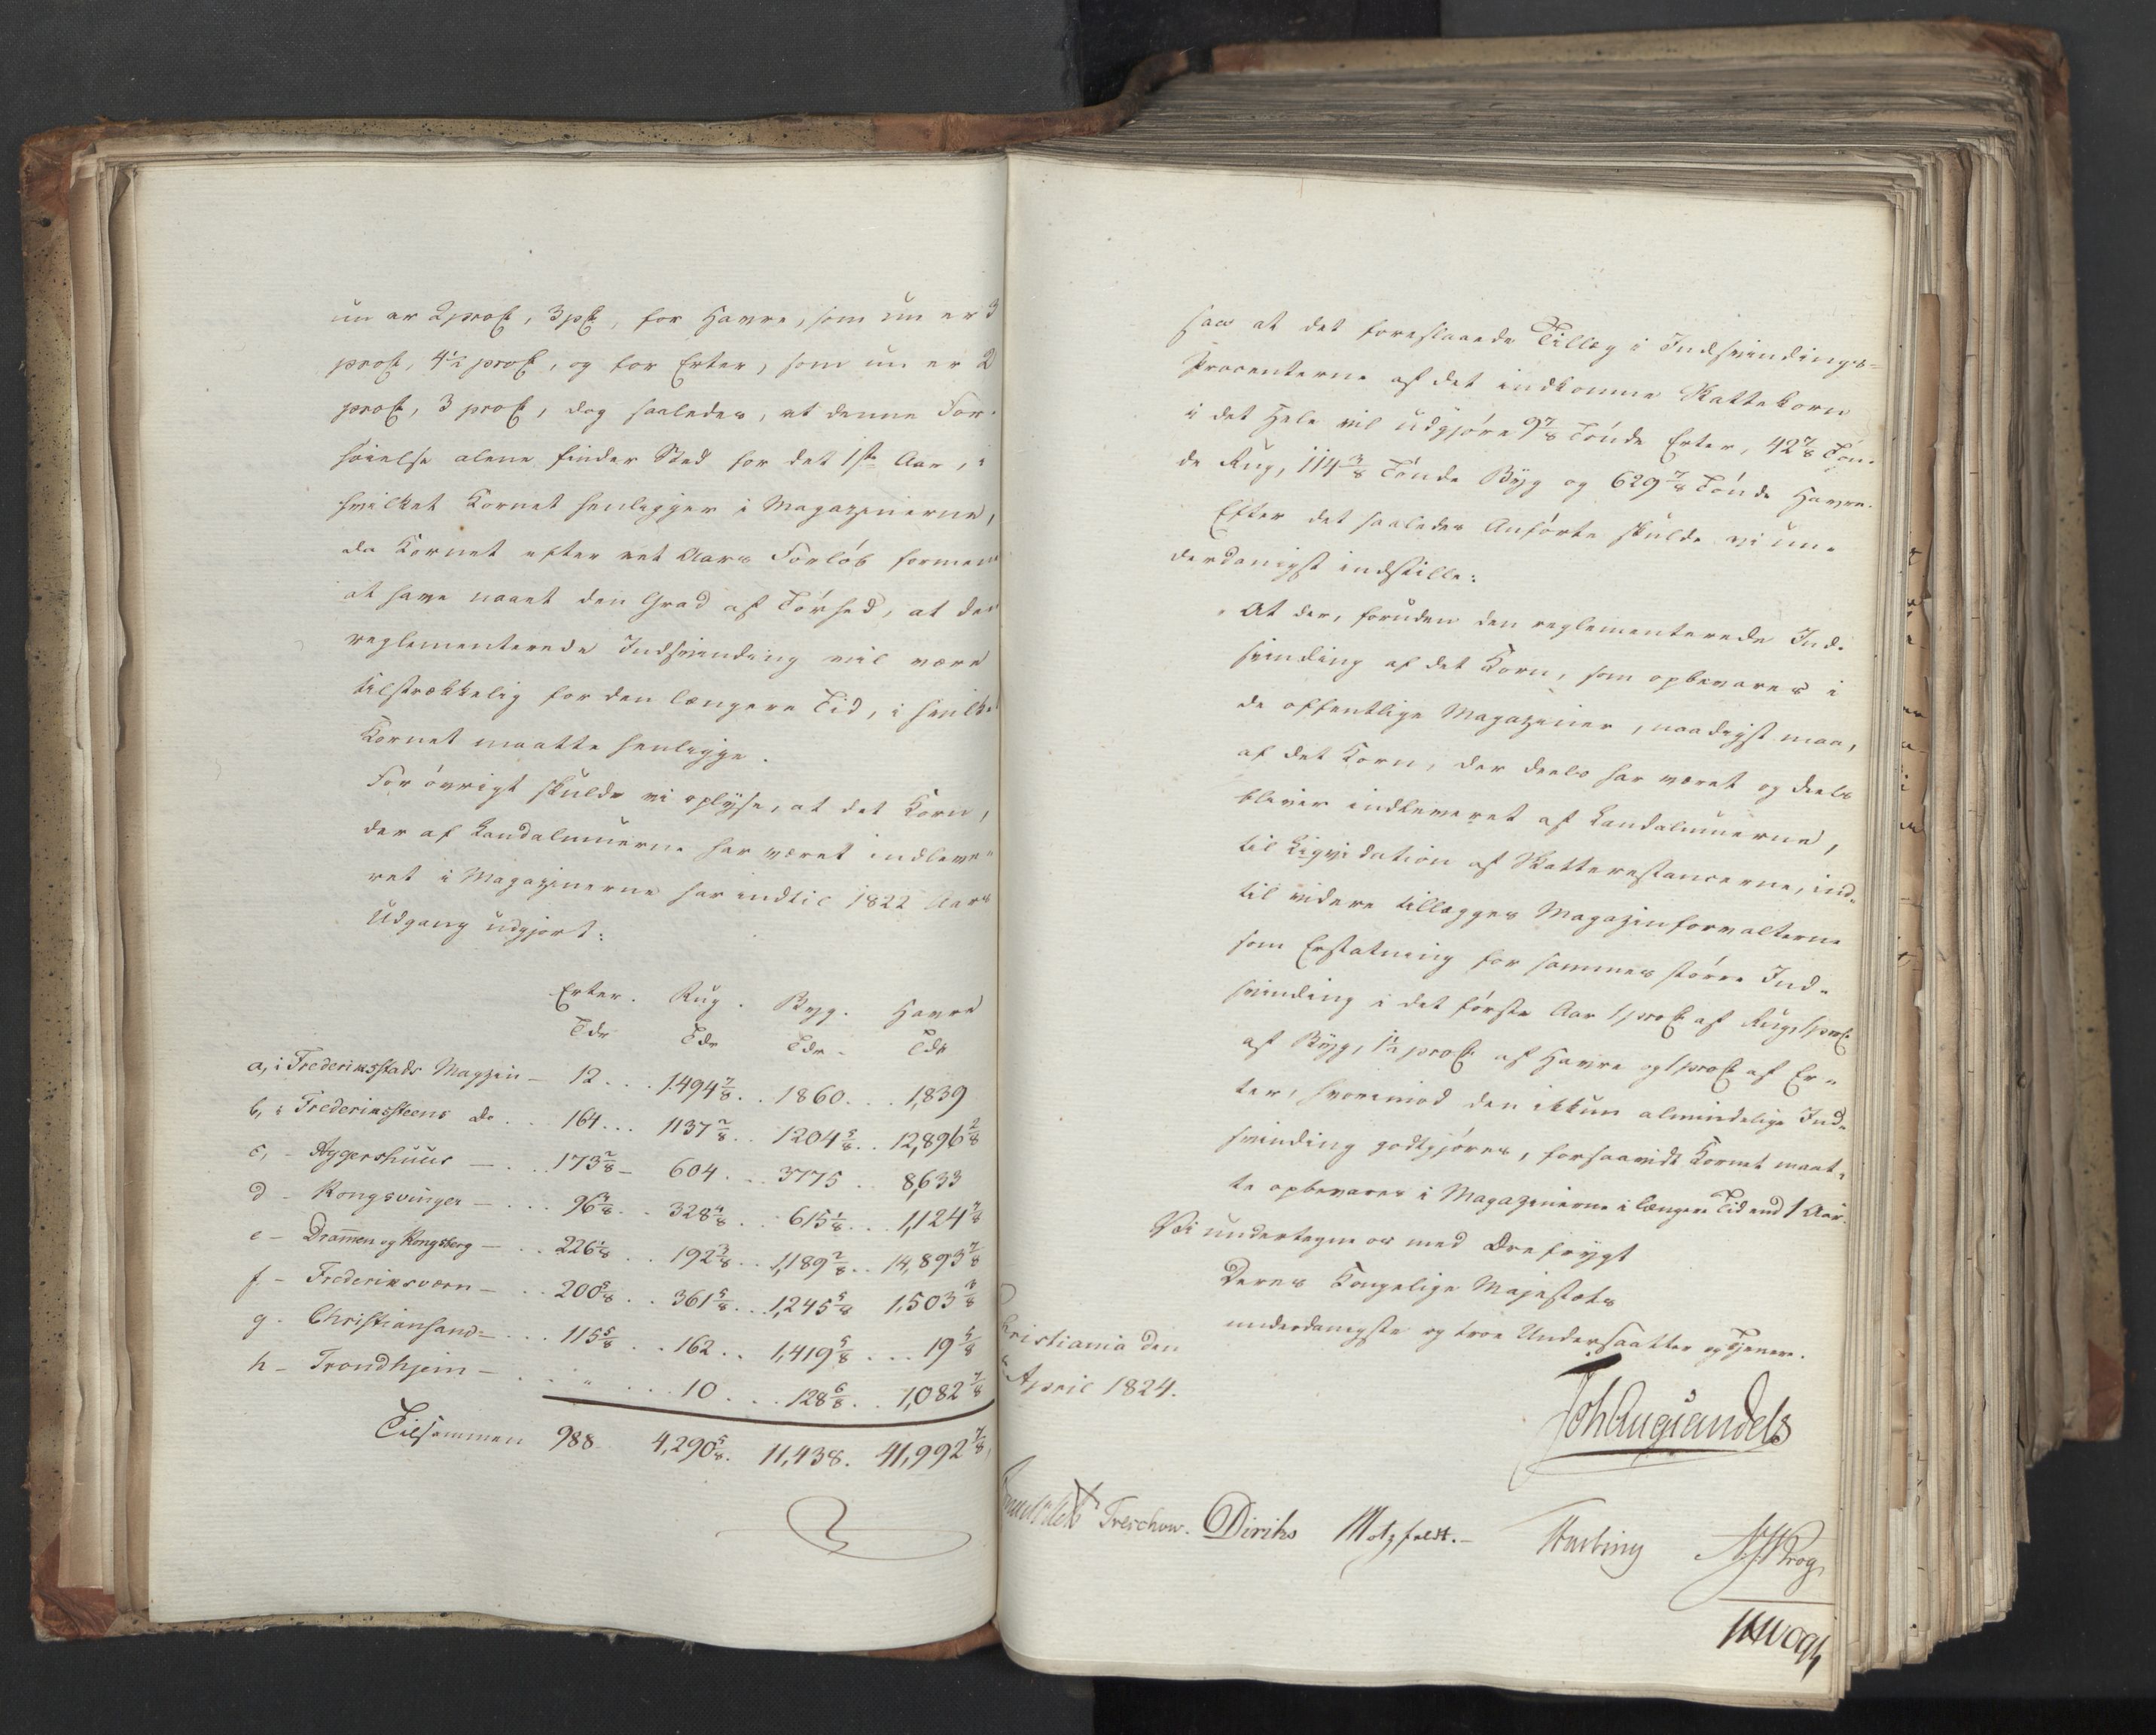 nu er 2 proC, 3 pC, for Havre, som nu er 3
proC, 4½ proC, og for Erter, som nu er 2
proC, 3 proC, dog saaledes, at denne For-
høielse alene finder Sted for det 1ste Aar, i
hvilket Kornet henligger i Magazinerne,
da Kornet efter eet Aars Forløb formenes
at have naaet den Grad af Tørhed, at den
reglementerede Indsvinding vil være
tilstrækkelig for den længere Tid, i hvilken
Kornet maatte henligge.
For øvrigt skulde vi oplyse, at det Korn,
der af Landalmuerne har været indleve-
ret i Magazinerne har indtil 1822 Aars
Udgang udgjort:
Erter. Rug. Byg. Havre
Tdr Tdr Tdr Tdr
a, i Frederiksstads Magzin – 12 . . . 1494 7/8 . . 1860 . . . 1,839
b, i Frederiksteens do . . . 164 . . . 1137 2/8 . . 1204 5/8 . . 12,896 2/8
c, – Aggershuus – . . 173 2/8 – 604 . . . 3775 . . 8,633
d – Kongsvinger – . . . 96 3/8 . . 328 4/8 . . 615 1/8 . . . 1,124 7/8
e – Drammen og Kongsberg – . . 226 1/8 . . 192 3/8 . . 1,189 2/8 . . 14,893 7/8
f – Frederiksværn – . . 200 5/8 . . 361 5/8 . . 1,245 5/8 1,503 3/8
g . Christiansand – . . . 115 5/8 . . 162 . . 1,419 5/8 . . . 19 5/8
h – Trondhjem – . . . " . . . 10 . . . 128 6/8 . . 1,082 7/8
Tilsammen 988 4,290 5/8. 11,438. 41,992 7/8
saa at det foreslaaede Tillæg i Indsvindings-
Procenterne af det indkomne Skattekorn
i det Hele vil udgjøre 9 7/8 Tønde Erter, 42 7/8 Tøn-
de Rug, 114 3/8 Tønde Byg og 629 7/8 Tønde Havre.
Efter det saaledes Anførte skulde vi un-
derdanigst indstille:
"At der, foruden den reglementerede Ind-
svinding af det Korn, som opbevares i
de offentlige Magaziner, naadigst maa,
af det Korn, der deels har været og deels
bliver indleveret af Landalmuerne,
til Liqvidation af Skatterestancerne, ind-
til videre tillægges Magazinforvalterne
som Erstatning for sammes større Ind-
svinding i det første Aar 1 proC af Rug, 1 proC
af Byg, 1½ proC af Havre og 1 proC af Er-
ter, hvorimod den ikkun almindelige Ind-
svinding godtgjøres, forsaavidt Kornet maat-
te opbevares i Magazinerne i længere Tid end 1 Aar.
Vi undertegne os med Ærefrygt
Deres Kongelige Majestæts
underdanigste og troe Undersaatter og Tjenere.
Christiania den
April 1824.
Joh Aug Sandels
Treschow. Diriks Motzfeldt. – Fasting
Krog
Vogt